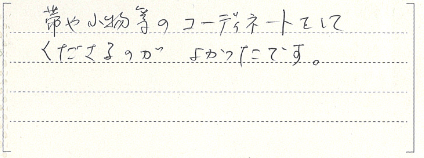 帯や小物等のコーディネートをして
くださるのが よかったです。